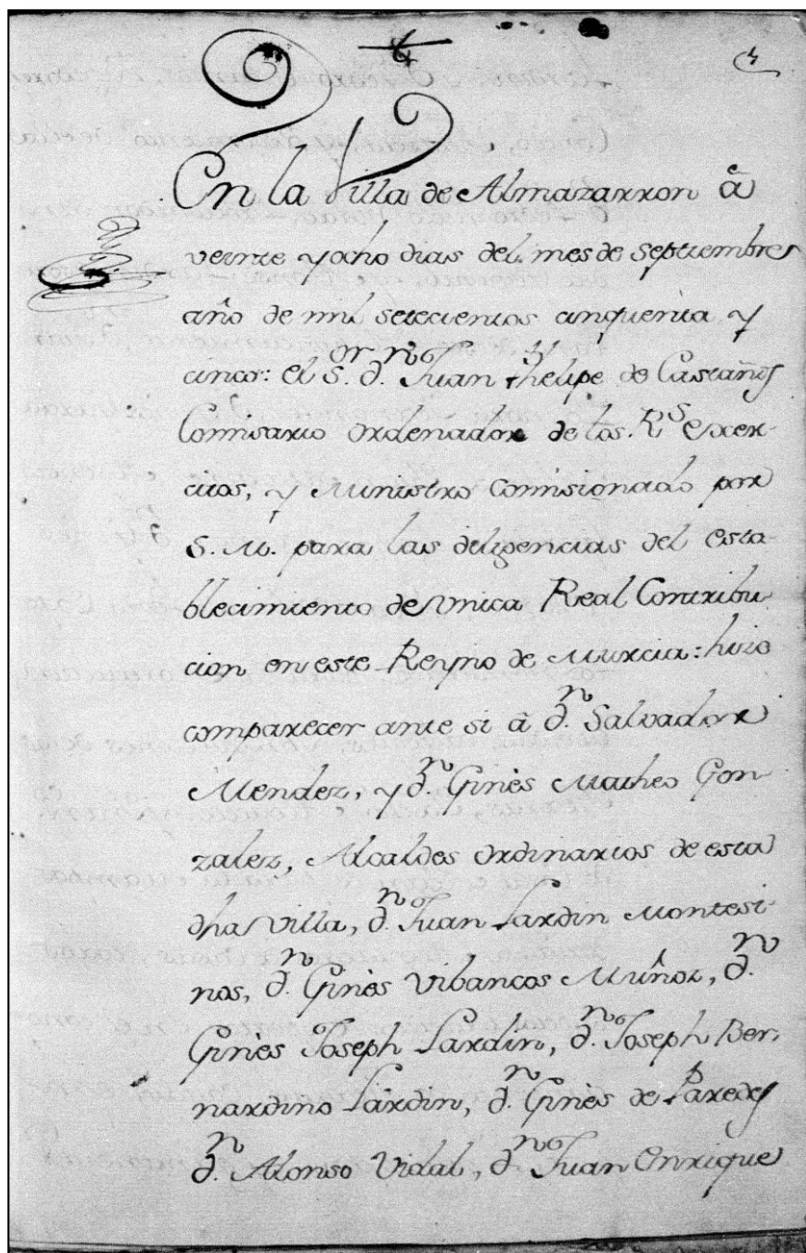 En la Villa de Almazarron â
veinte y ocho dias del mes de Septiembre
año de mil setecientos cinquenta y
cinco: el S.or d.n Juan Phelipe de Castaños
Comisario Ordenador de los R.s Exer-
citos, y Ministro Comisionado por
S. M. para las diligencias del esta-
blecimiento de Vnica Real Contribu
cion en este Reyno de Murcia: hizo
comparecer ante si â d.n Salvador
Mendez, y d.n Ginès Matheo Gon
zalez, Alcaldes Ordinarios de esta
dha Villa, d.n Juan Lardin Montesi-
nos, d.n Ginès Vibancos Muñoz, d.n
Ginès Joseph Lardin, d.n Joseph Ber-
nardino Lardin, d.n Ginès de Paredes
d.n Alonso Vidal, d.n Juan Enrique